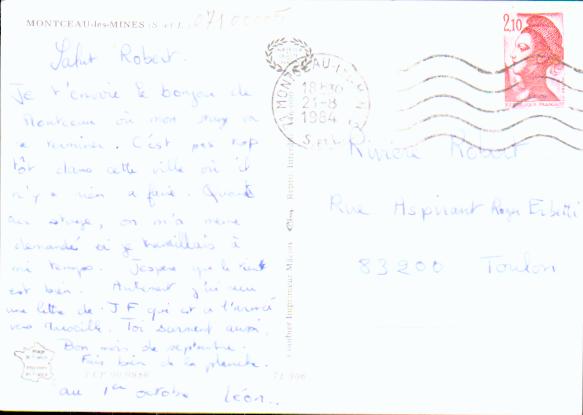 MONTCEAU-les-MINES (S.-et-L.)
Salut Robert.
Je t'envoie le bonjour de
Montceau où mon stage va
se terminer. C'est pas trop
tôt dans cette ville où il
n'y a rien a faire. Quant
au stage, on m'a même
demandé si je travaillais à
mi temps. J'espère que le
est bien. Autrement j'ai reçu
une lettre de J F qui est a l'armée
vers Marseille. Toi surement aussi.
Bon mois de septembre.
Fais bien de la planche.
au 1er octobre Léon..
2,10
MONTCEAU-LES-MINES
18H30
21-8
1984
S.ET L.
Rivière Robert
Rue Aspirant Roger
83200 Toulon
Combier Imprimeur Mâcon